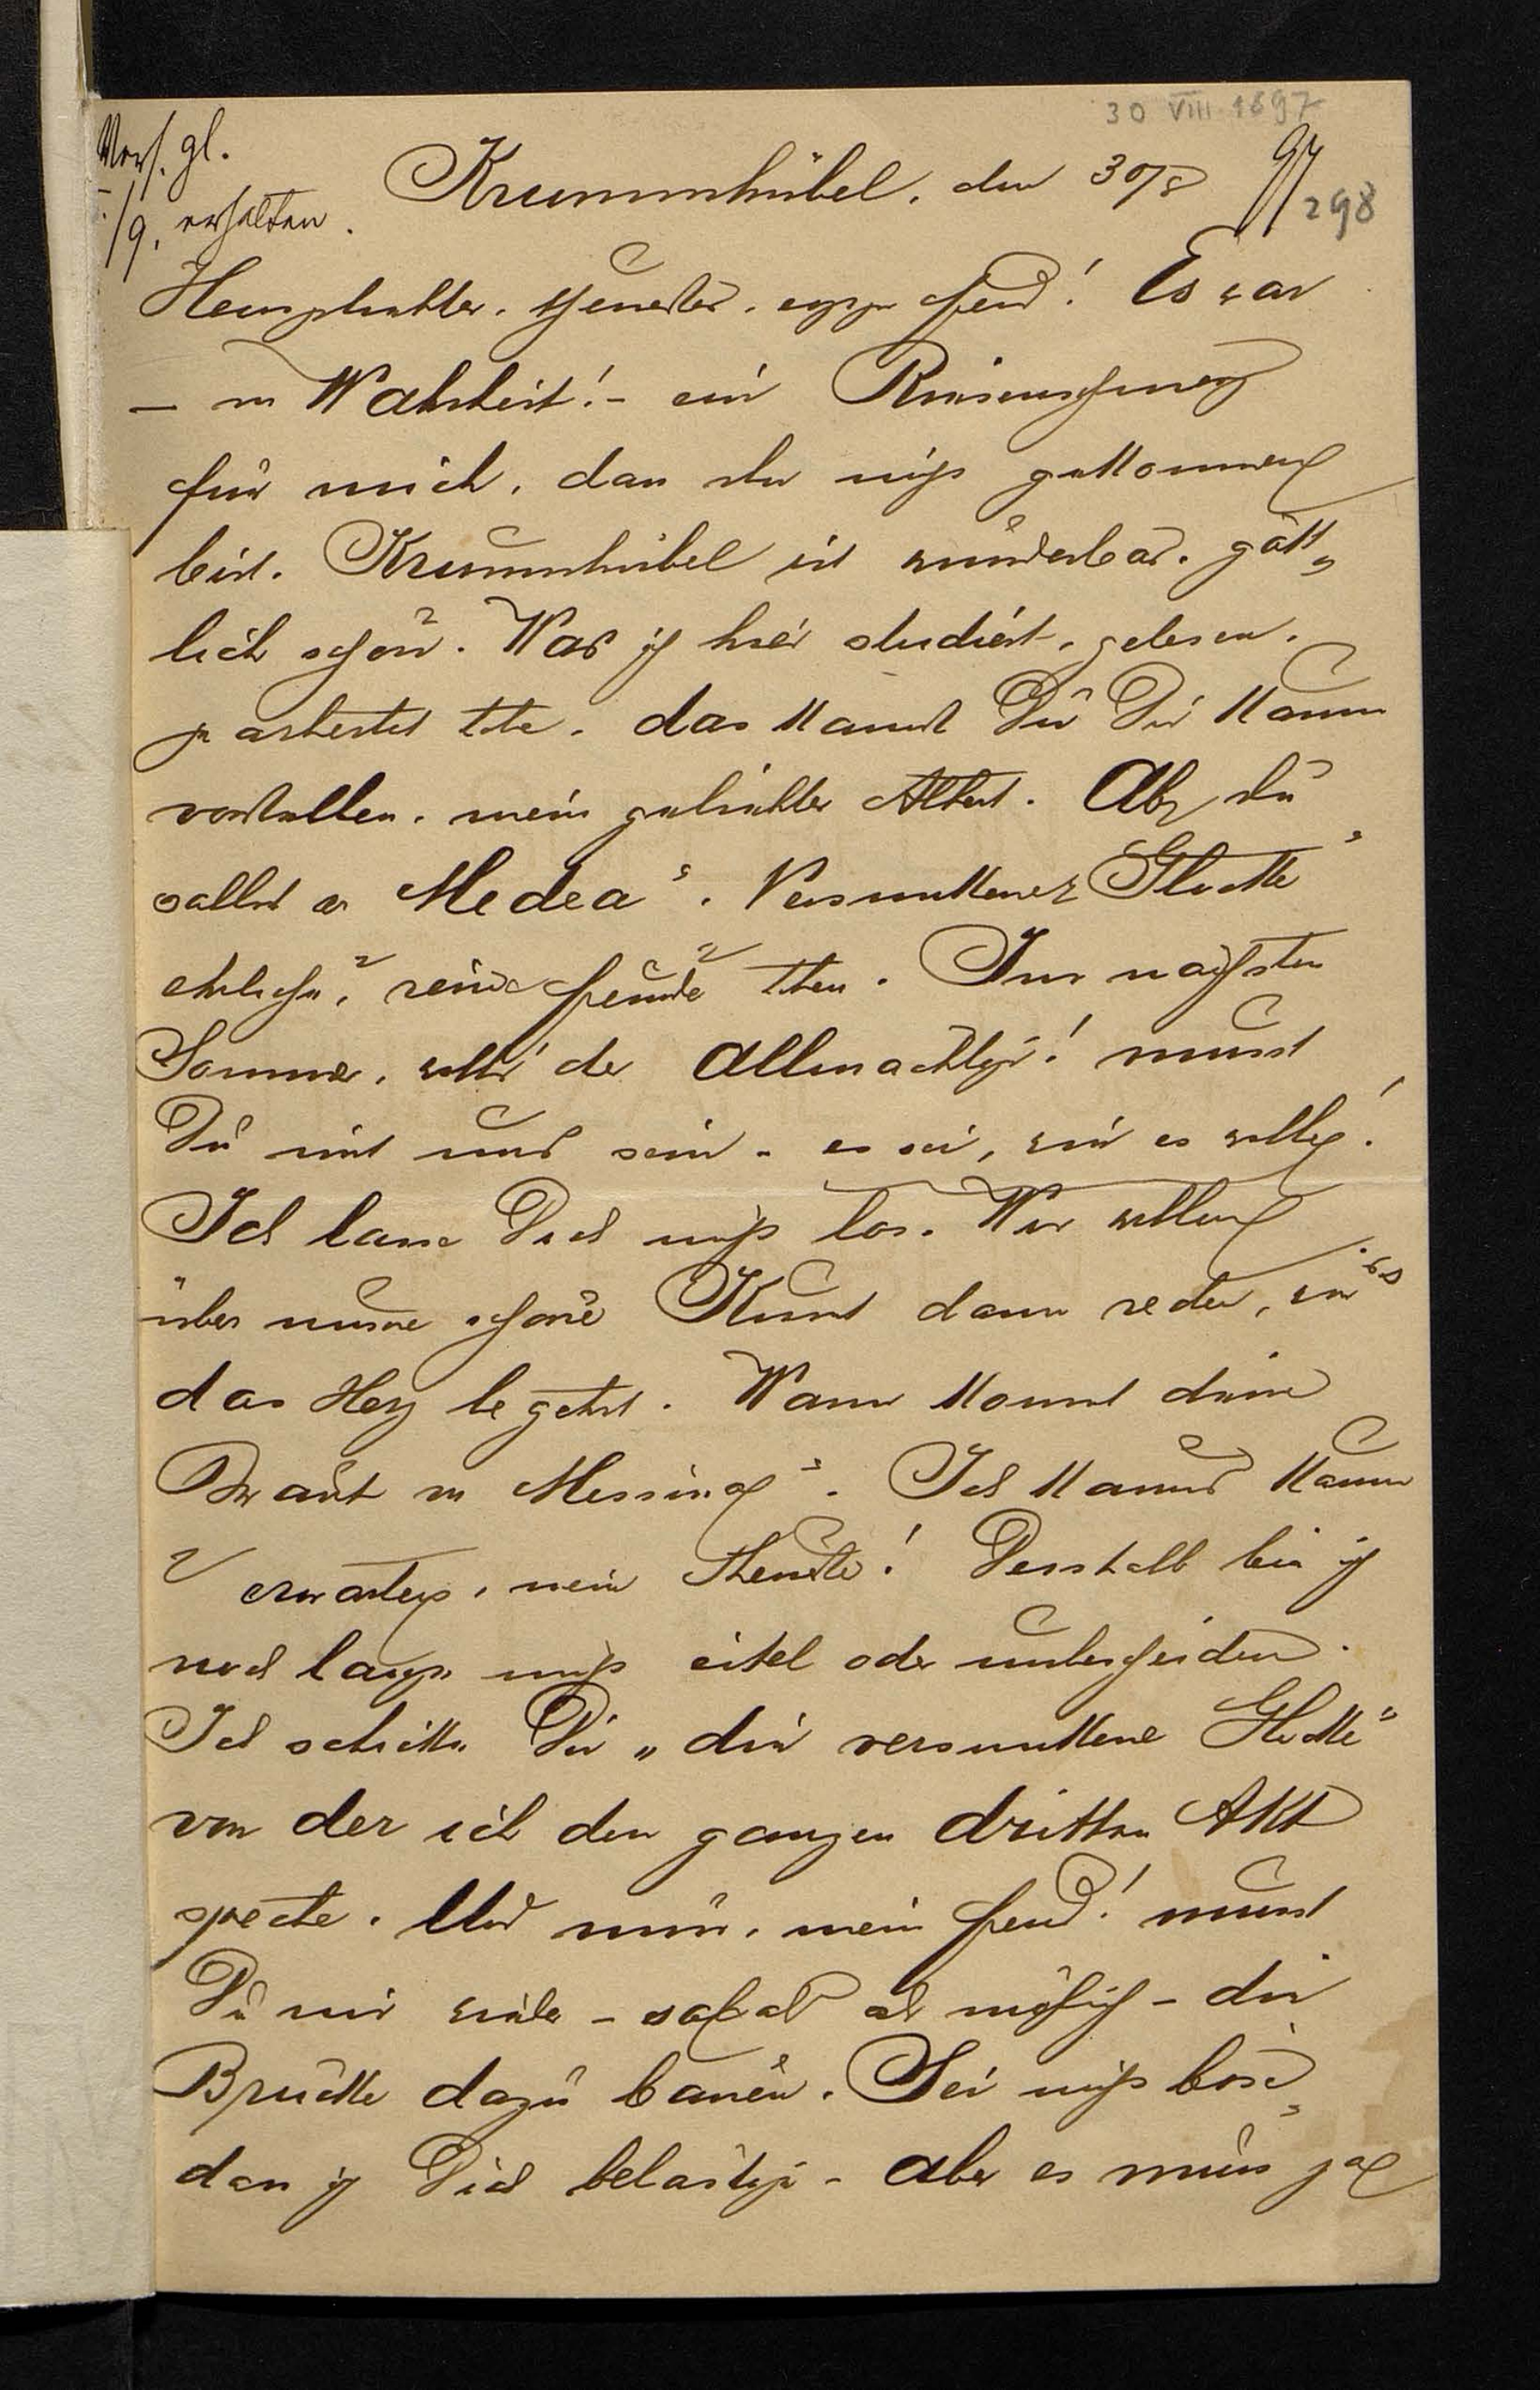 30 VIII 1897
gl.
/9. erhalten.
Krummhübel, den 30/8 97
298
theurer, Freund! Es war
– in Wahrheit! – ein Riesenschmerz
für mich, dass du nicht gekommen
bist. Krummhübel ist wunderbar, gött„
lich schön. Was ich hier studiert, gelesen,
gearbeitet habe, das kannst Du Dir kaum
vorstellen, mein geliebter Albert. Aber du
sollst an Medea“, Versunkener Glocke“
ehrliche, reine Freude haben. Im nächsten
Sommer, will's der Allmächtige! musst
Du mit uns sein – es sei, wie es wolle!
Ich lasse Dich nicht los. Wir wollen
über unsere schöne Kunst dann reden, wie es
das Herz begehrt. Wann kommt deine
Braut von Messina“. Ich kann's kaum
erwarten, mein Theurer! Desshalb bin ich
noch lange nicht eitel oder unbescheiden.
Ich schicke Dir „die versunkene Glocke“
von der ich den ganzen dritten Akt
spreche. Und nun, mein Freund! musst
Du mir wieder – sobald als möglich – die
Brücke dazu bauen. Sei nicht böse,
dass ich Dich belästige – aber es muss ja